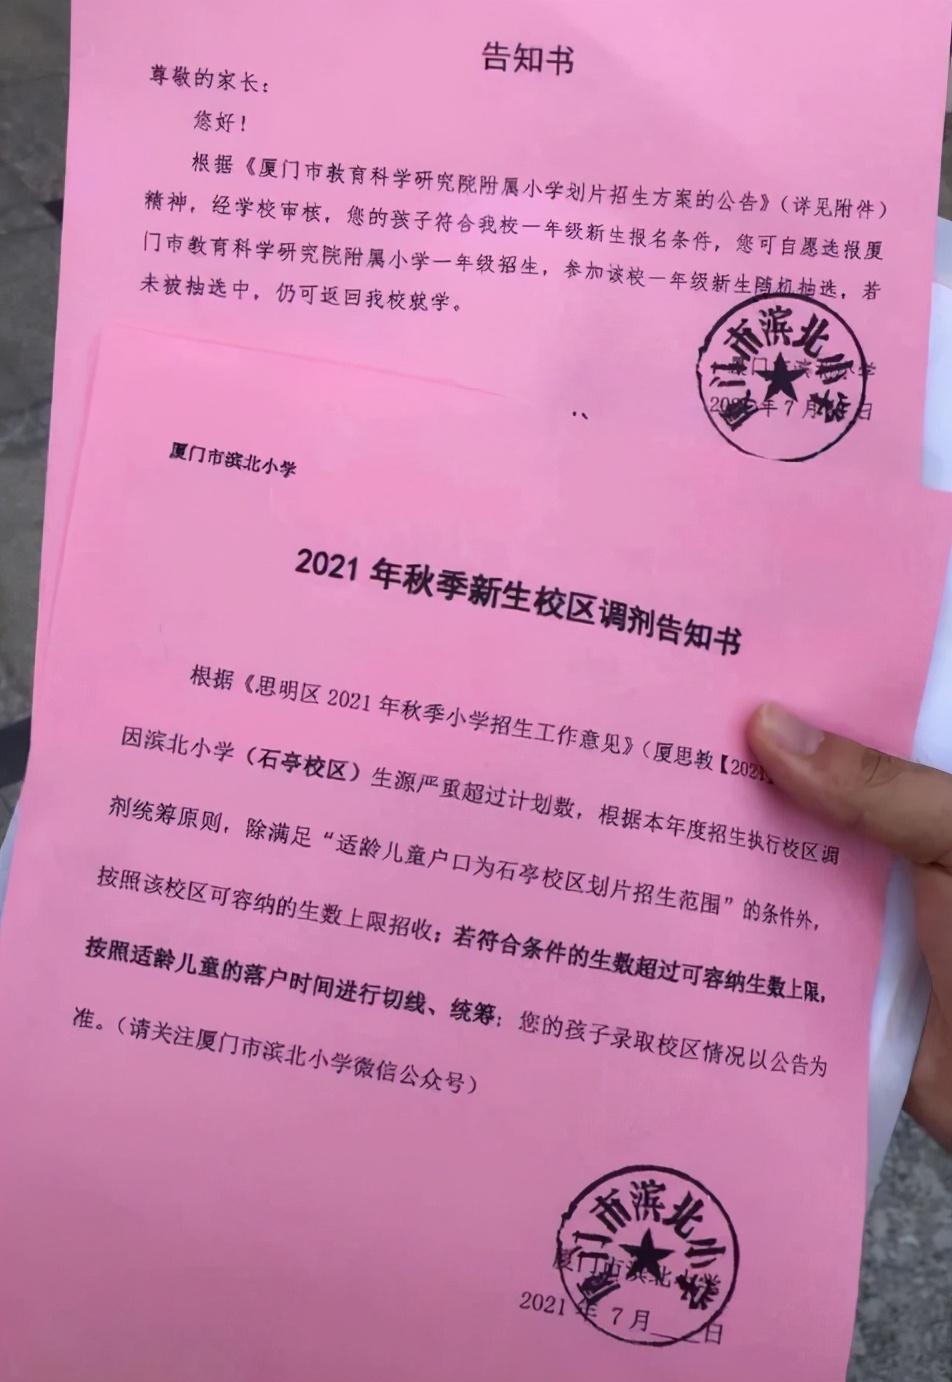 告知书
尊敬的家长：
您好！
根据《厦门市教育科学研究院附属小学划片招生方案的公告》（详见附件）
精神，经学校审核，您的孩子符合我校一年级新生报名条件，您可自愿选报厦
门市教育科学研究院附属小学一年级招生，参加该校一年级新生随机抽选，若
未被抽选中，仍可返回我校就学。
厦门市滨北小学
年7月 日
厦门市滨北小学
厦门市滨北小学
2021年秋季新生校区调剂告知书
根据《思明区2021年秋季小学招生工作意见》（厦思教【2021
因滨北小学（石亭校区）生源严重超过计划数，根据本年度招生执行校区调
剂统筹原则，除满足“适龄儿童户口为石亭校区划片招生范围”的条件外，
按照该校区可容纳的生数上限招收；若符合条件的生数超过可容纳生数上限，
按照适龄儿童的落户时间进行切线、统筹；您的孩子录取校区情况以公告为
准。（请关注厦门市滨北小学微信公众号）
厦门市滨北小学
2021年7月___日
厦门市滨北小学